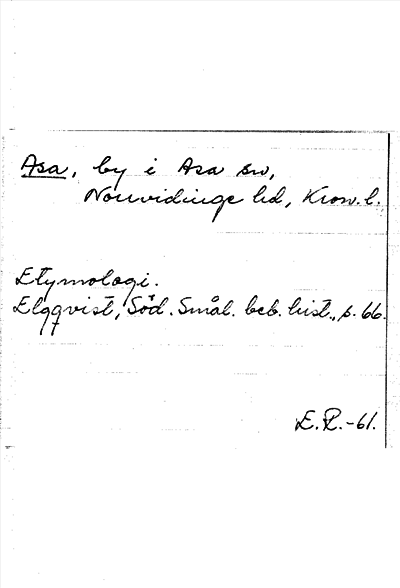 Asa, by i Asa sn,
Norrvidinge hd, Kron. l.
Etymologi.
Elgqvist, Söd. Smål. beb. hist., s. 66.
E.R.-61.